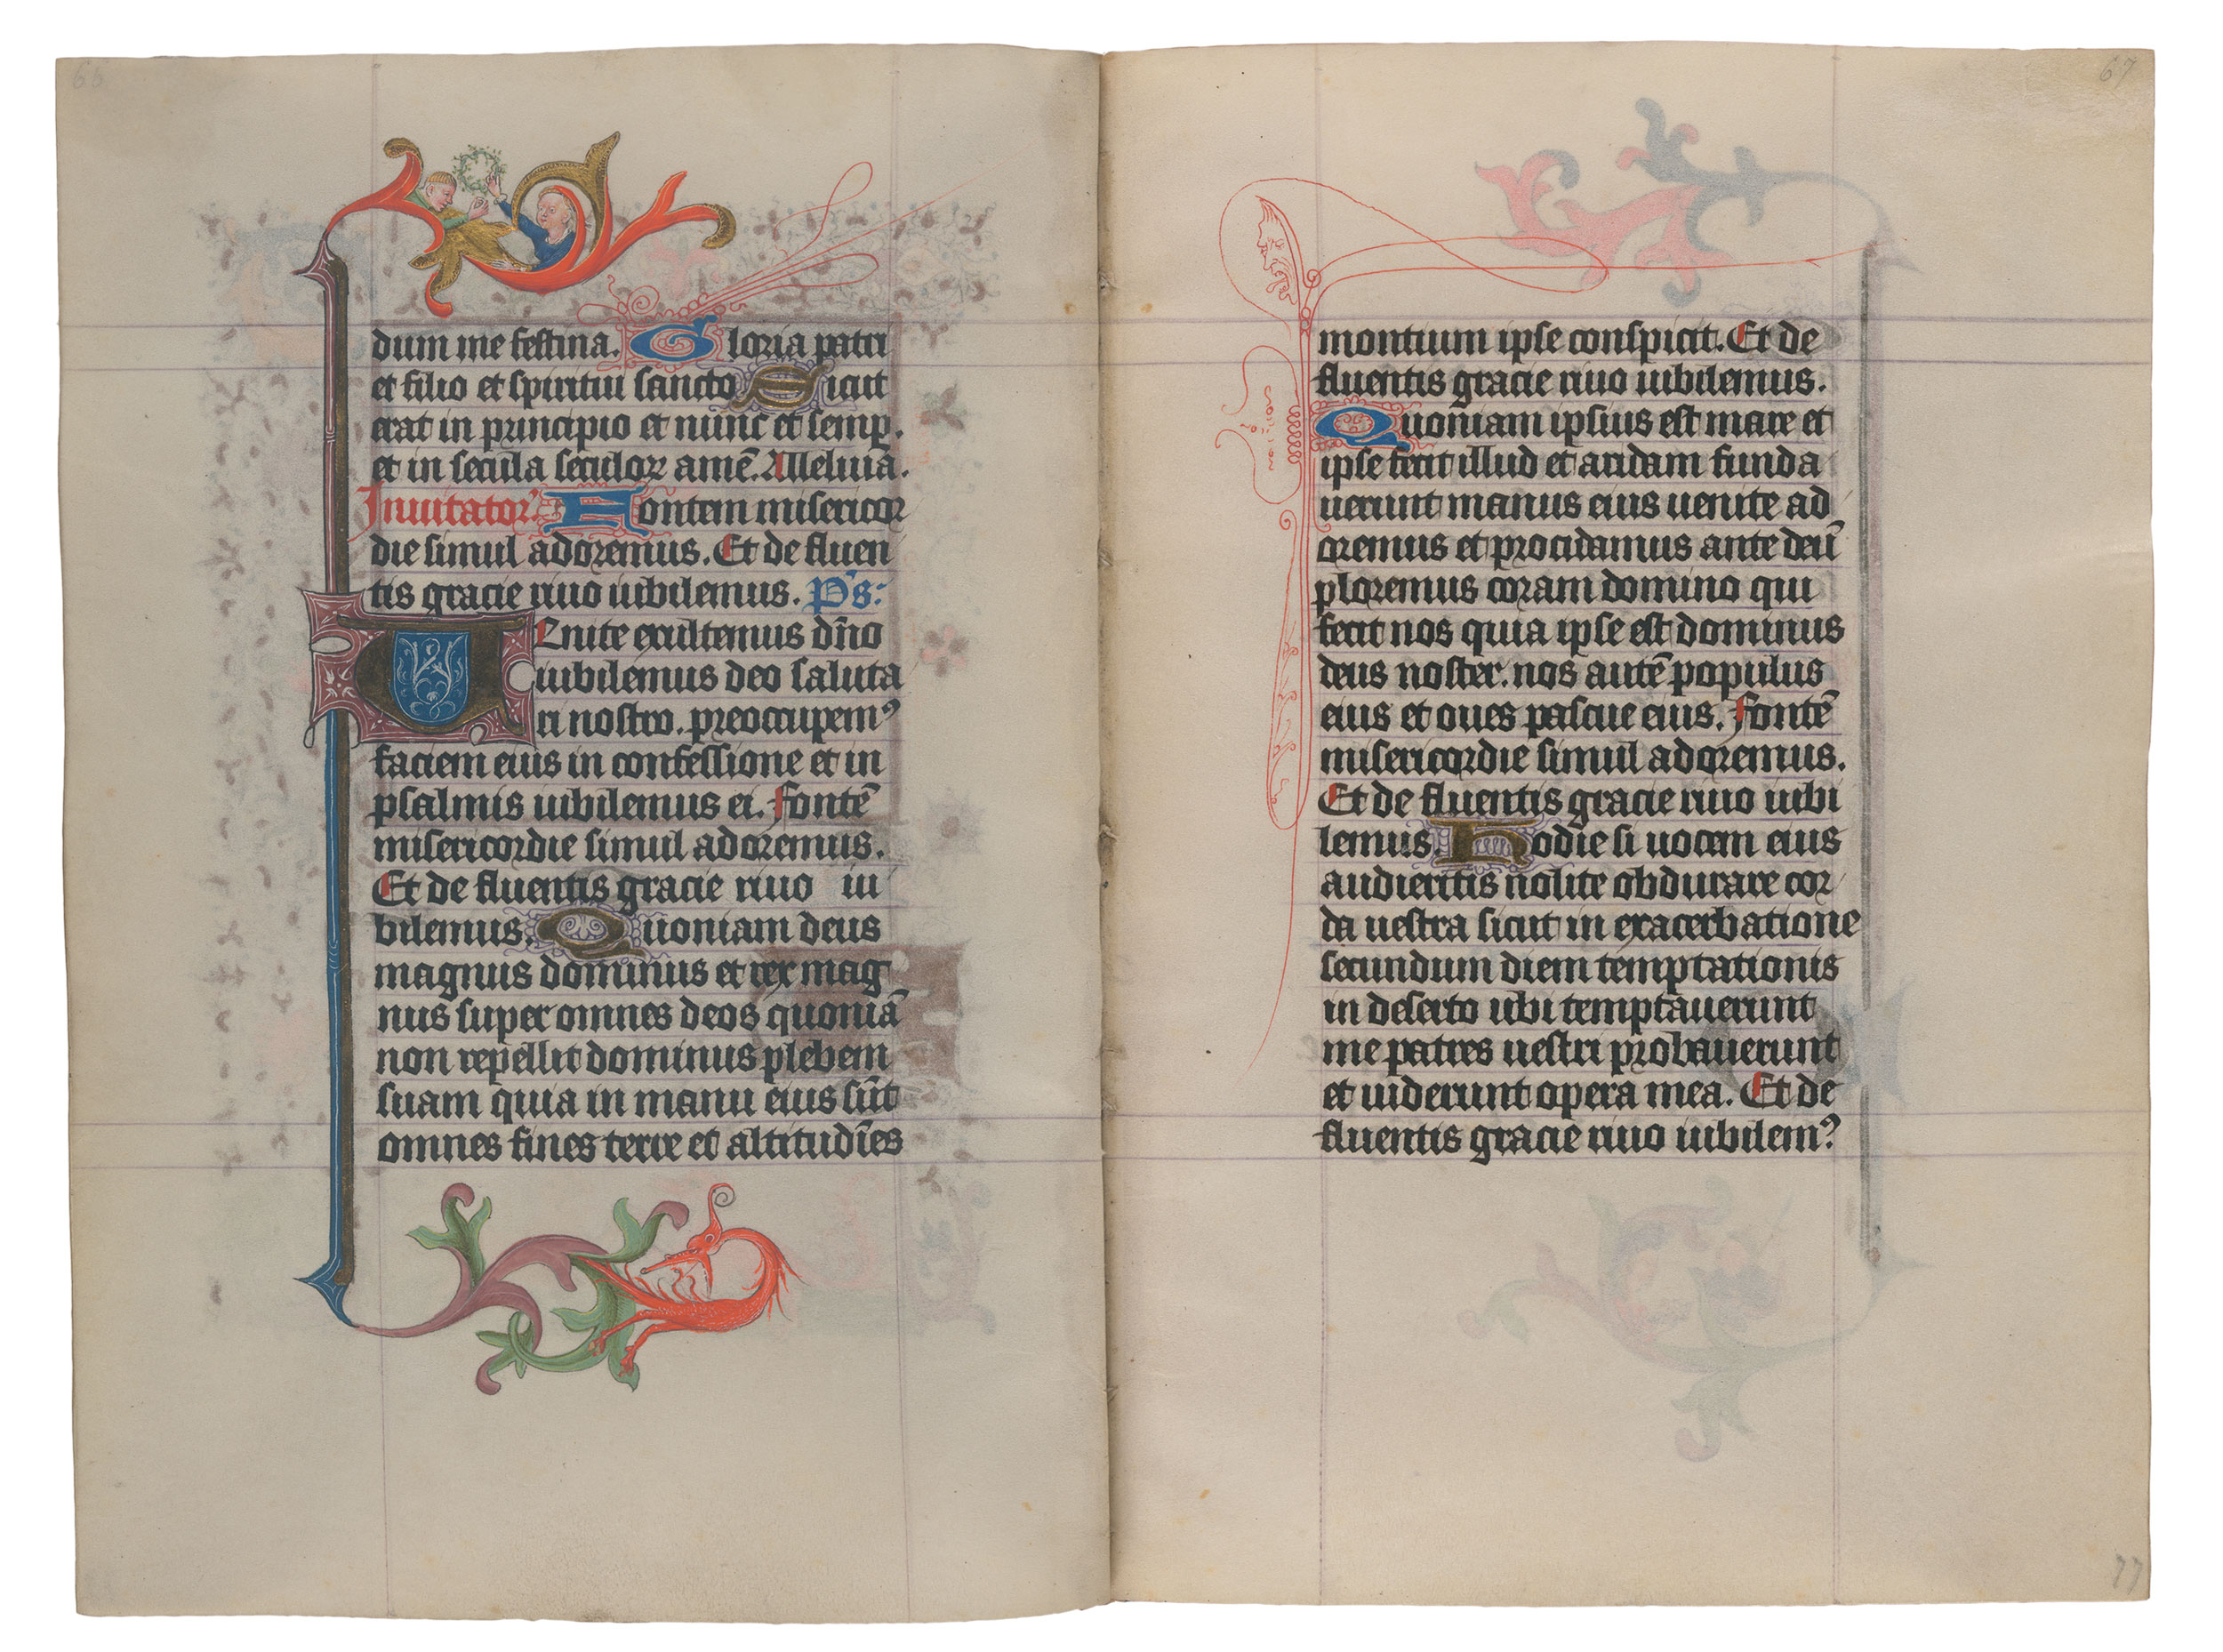 66
dum me festina. Gloria patri
et filio et spiritui sancto Sicut
erat in principio et nunc et semp.
et in secula seculoꝝ amē. Alleluia.
Inuitator' Fontem misericor
die simul adoremus. Et de fluen
tis gracie riuo iubilemus. P's:
VEnite exultemus dn̄o
iubilemus deo saluta
ri nostro. preoccupemꝰ
faciem eius in confessione et in
psalmis iubilemus ei. Fontē
misericordie simul adoremus.
Et de fluentis gracie riuo iu
bilemus. Quoniam deus
magnus dominus et rex mag
nus super omnes deos quoniā
non repellit dominus plebem
suam quia in manu eius sūt
omnes fines terre et altitudīes
67
montium ipse conspicit. Et de
fluentis gracie riuo iubilemus.
Quoniam ipsius est mare et
ipse fecit illud et aridam funda
uerunt manus eius uenite ad
oremus et procidamus ante deū
ploremus coram domino qui
fecit nos quia ipse est dominus
deus noster. nos autē populus
eius et oues pascue eius. Fontē
misericordie simul adoremus.
Et de fluentis gracie riuo iubi
lemus. Hodie si uocem eius
audieritis nolite obdurare cor
da uestra sicut in exacerbatione
secundum diem temptationis
in deserto ubi temptauerunt
me patres uestri probauerunt
et uiderunt opera mea. Et de
fluentis gracie riuo iubilemꝰ
77